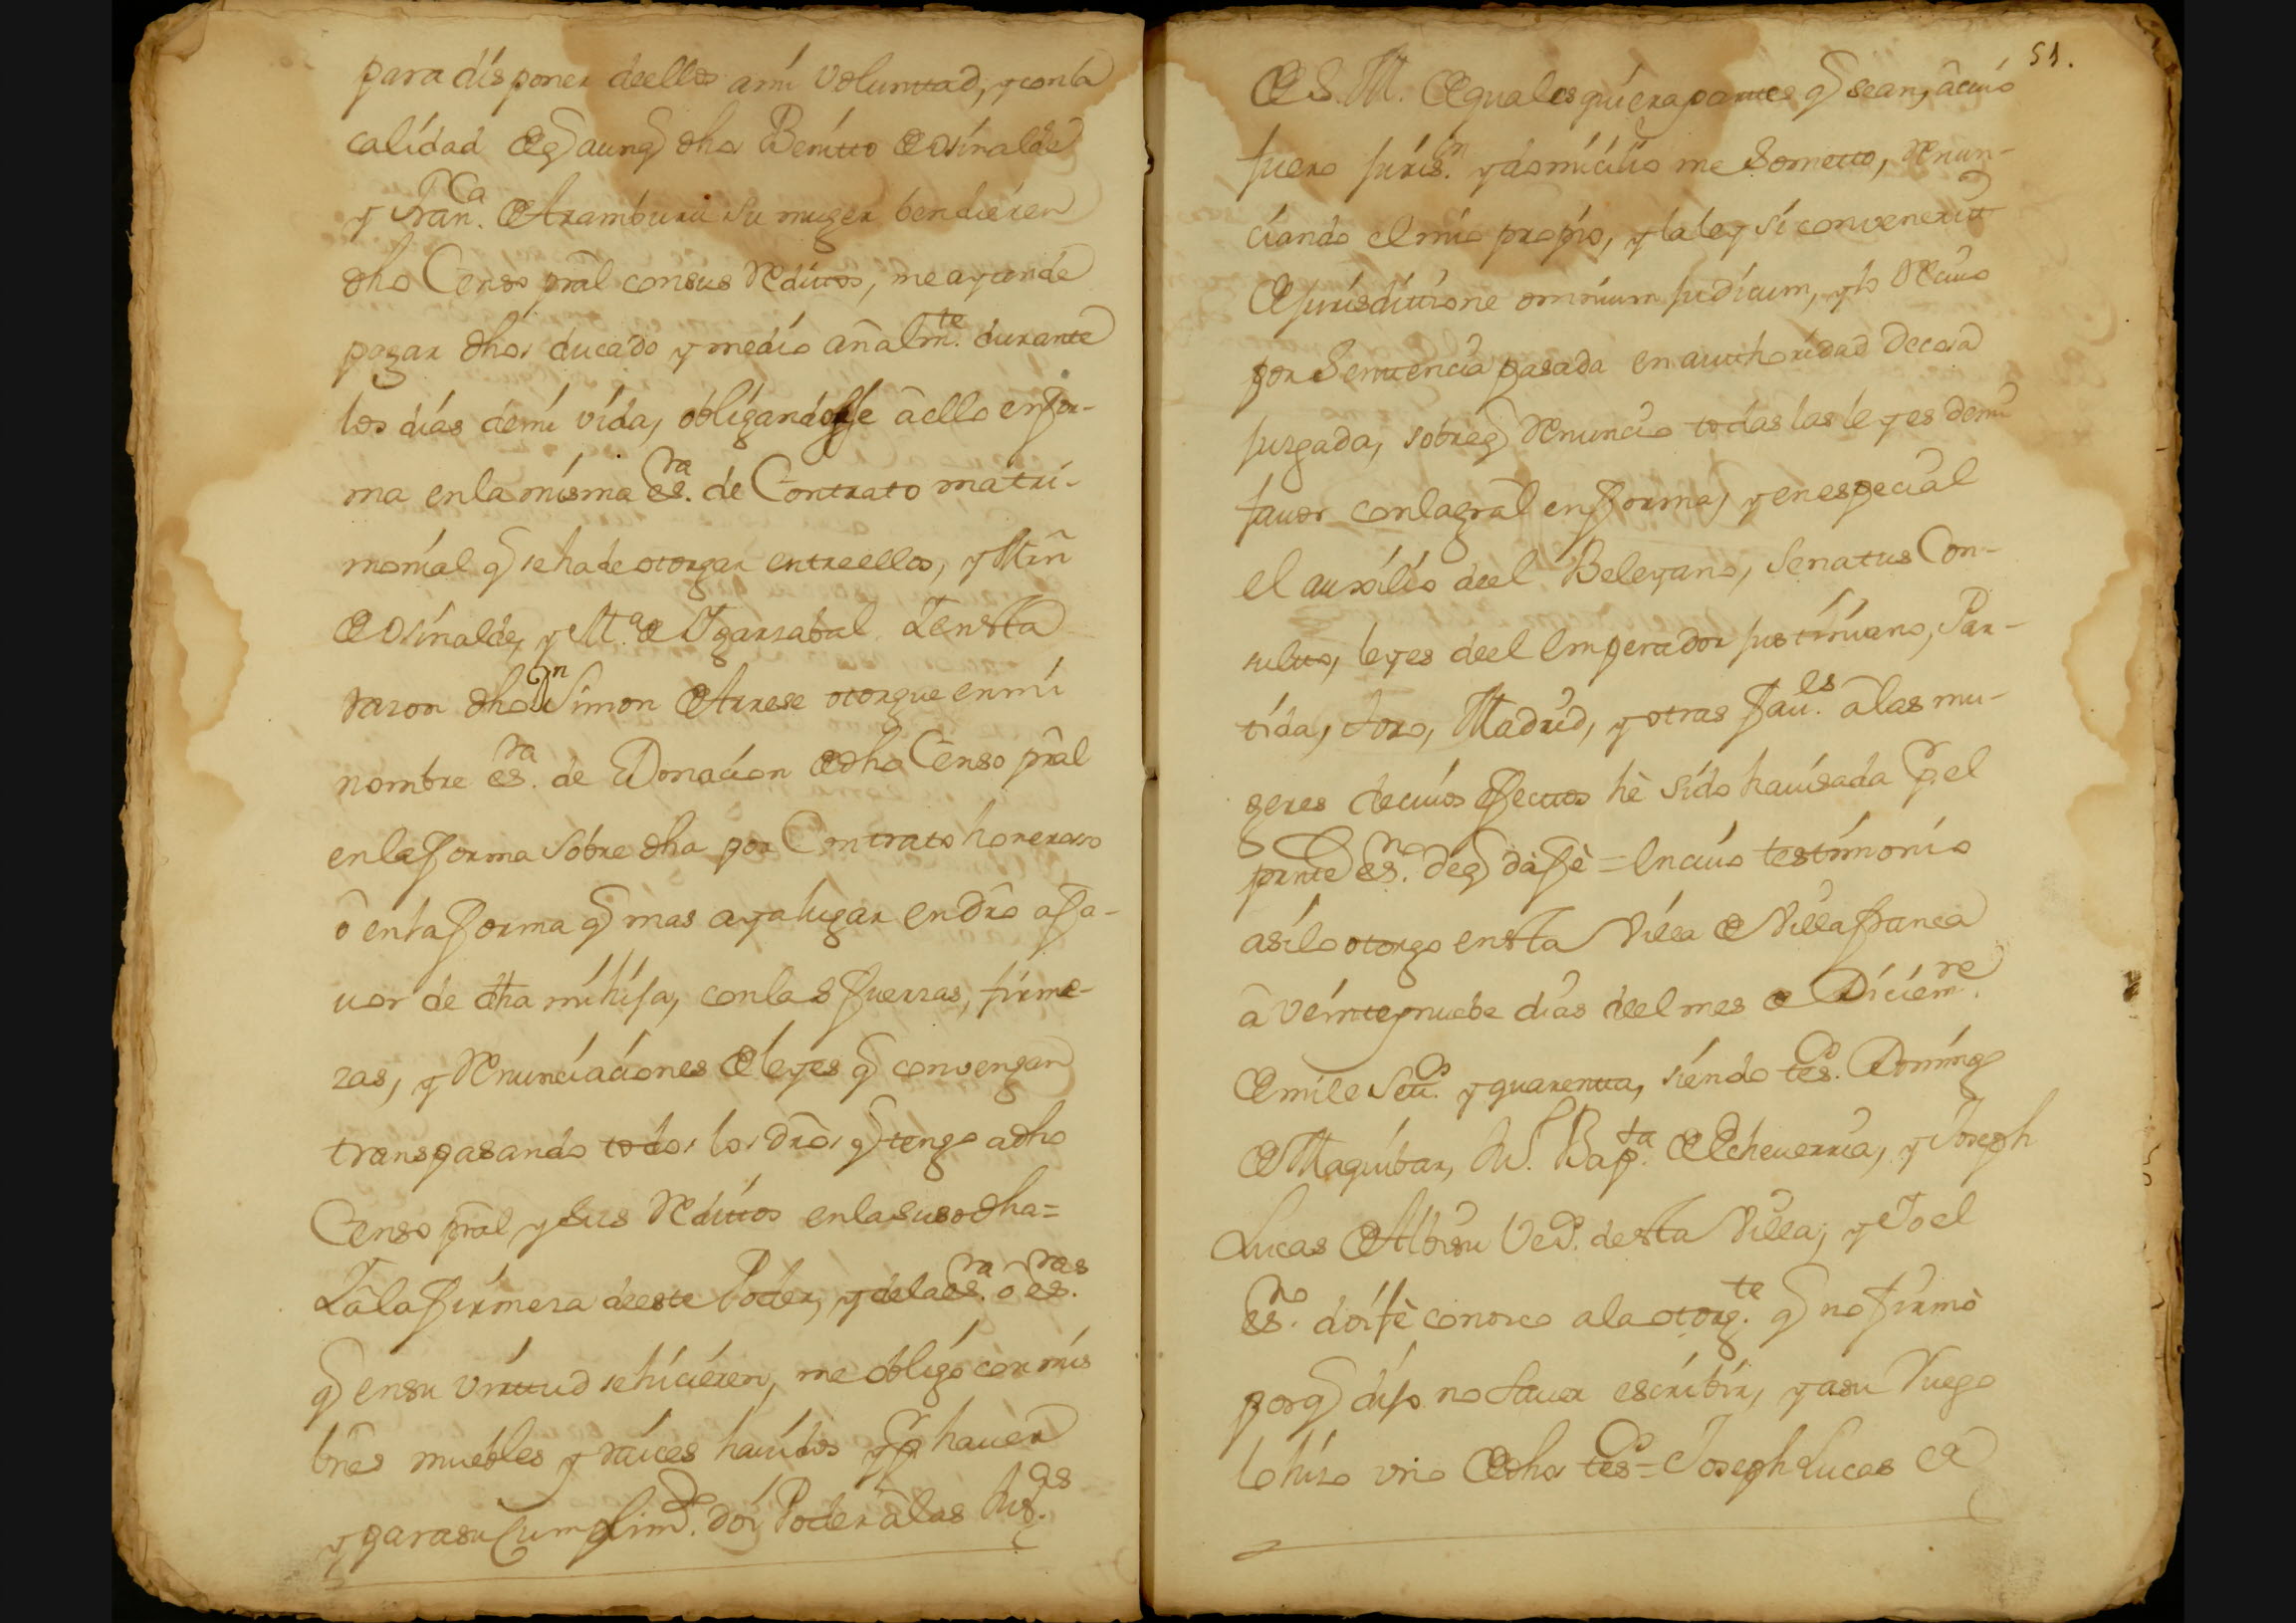 para disponer deellos ami Voluntad, y con la
calidad de q̃ aunq̃ dhos Benitto de Osinalde
y Fran.ca de Aramburu su muger bendieren
dho Censo pr̃al con sus Reditos, me ayan de
pagar dhos ducado y medio añalm.te durante
los dias de mi vida, obligandose â ello en for-
ma en la misma es.ra de Contrato matri-
monial q̃ se ha de otorgar entre ellos, y Mrñ
de Osinalde, y M.a de Ygarzabal. Y en sta
razon dho D.n Simon de Arrese otorgue en mi
nombre es.ra de Donacion de dho Censo pr̃al
en la forma sobre dha por Contrato honeroso
ô en la forma q̃ mas aya lugar en dr̃o a fa-
uor de dha mi hija, con las fuerzas, firme-
zas, y Renunciaciones de leyes q̃ convengan
transpasando todos los dr̃os q̃ tengo a dho
Censo pr̃al y sus Reditos en la susodha=
Y â la firmeza de este Poder, y de la es.ra ô es.ras
q̃ en su virtud se hicieren, me obligo con mis
bñes muebles y raices hauidos y p.r hauer
y para su Cumplim.to doi Poder â las Jus.as
51.
de S. M. de quales quiera partes q̃ sean, â cuio
fuero juris.on y domicilio me Sometto, Renun-
ciando el mio propio, y la ley si convenerit
de jurisdittione omnium judicum, y lo Reciuo
por Sentencia pasada en authoridad de cosa
juzgada, sobre q̃ Renuncio todas las leyes de mi
fauor con la gr̃al en forma, y en especial
el auxilio de el Beleyano, Senatus Con-
sulto, leyes de el Emperador Justiniano, Par-
tida, Toro, Madrid, y otras fau.es â las mu-
geres de cuios efectos hè sido hauisada p.r el
presnte es.no de q̃ dà fè = En cuio testimonio
asi lo otorgo en sta Villa de Villafranca
â veinte y nuebe dias de el mes de Diciem.re
de mile Sett.os y quarenta, siendo tes.os Domingo
de Maquibar, Ju. Bap.ta de Echeuerria, y Joseph
Lucas de Albisu Vez.os de sta Villa; y Yo el
es.no doi fè conozco a la otorg.te q̃ no firmò
por q̃ dijo no sauer escribir, y a su ruego
lo hizo vno de dhos tes.os = Joseph Lucas de